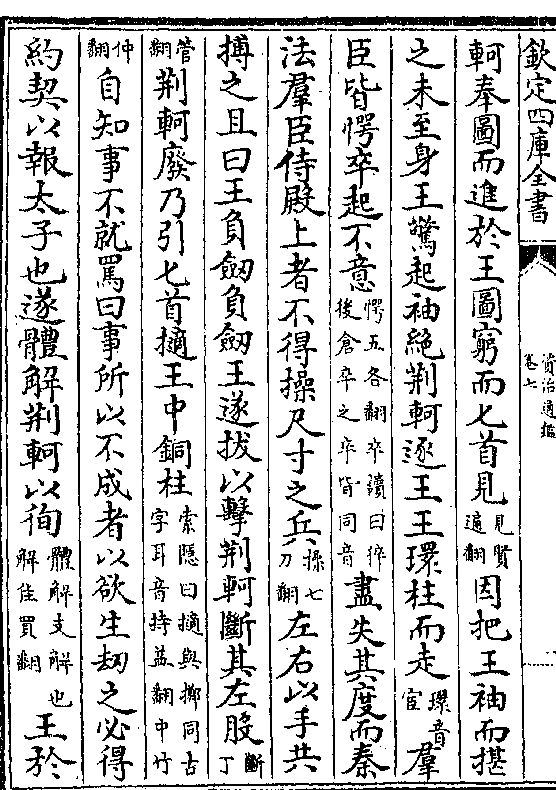 欽定四庫全書
資治通鑑
卷七
軻奉圖而進於王圖窮而匕首見見賢遍翻因把王袖而揕
之未至身王驚起袖絶荆軻逐王王環柱而走環音宦羣
臣皆愕卒起不意愕五各翻卒讀曰猝後倉卒之卒皆同音盡失其度而秦
法羣臣侍殿上者不得操尺寸之兵操七刀翻左右以手共
搏之且曰王負劒負劒王遂拔以擊荆軻斷其左股斷丁
管翻荆軻廢乃引匕首擿王中銅柱索隱曰擿與擲同古字耳音持益翻中竹
仲翻自知事不就罵曰事所以不成者以欲生劫之必得
約契以報太子也遂體解荆軻以徇體解支解也解佳買翻王於